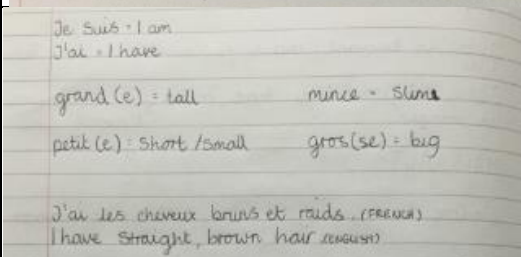 Je suis = I am
J'ai = I have
grand (e) = tall mince = slim
petit (e) = short / small gros(se) = big
J'ai les cheveux bruns et raids. (FRENCH)
I have straight, brown hair (ENGLISH)